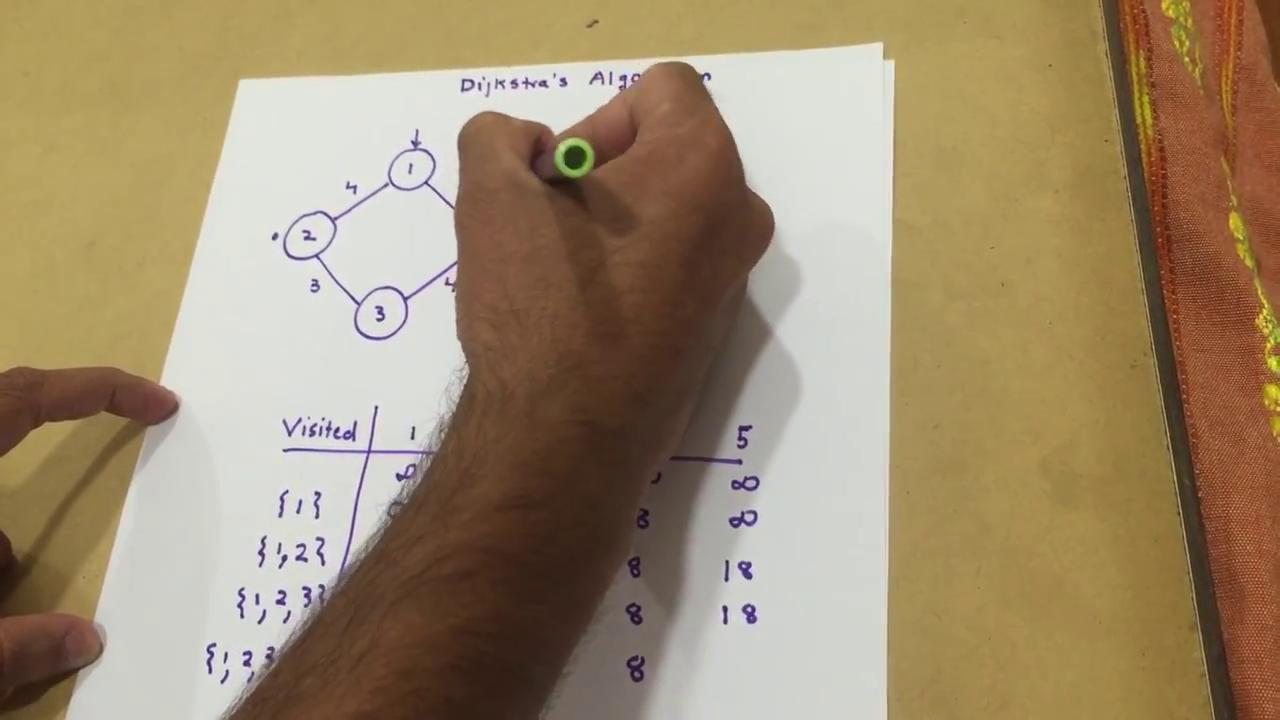 Dijkstra's
1
4
2
3
3
4
Visited 1 5
∞ ∞
{1} 8 ∞
{1,2} 8 18
{1,2,3} 8 18
{1,2, 8